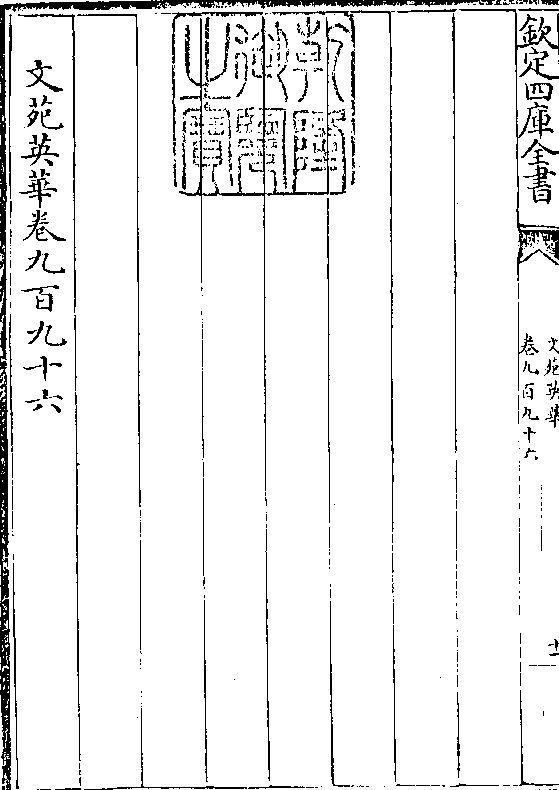 欽定四庫全書
文苑英華
卷九百九十六
十一
乾隆御覽之寶
文苑英華卷九百九十六